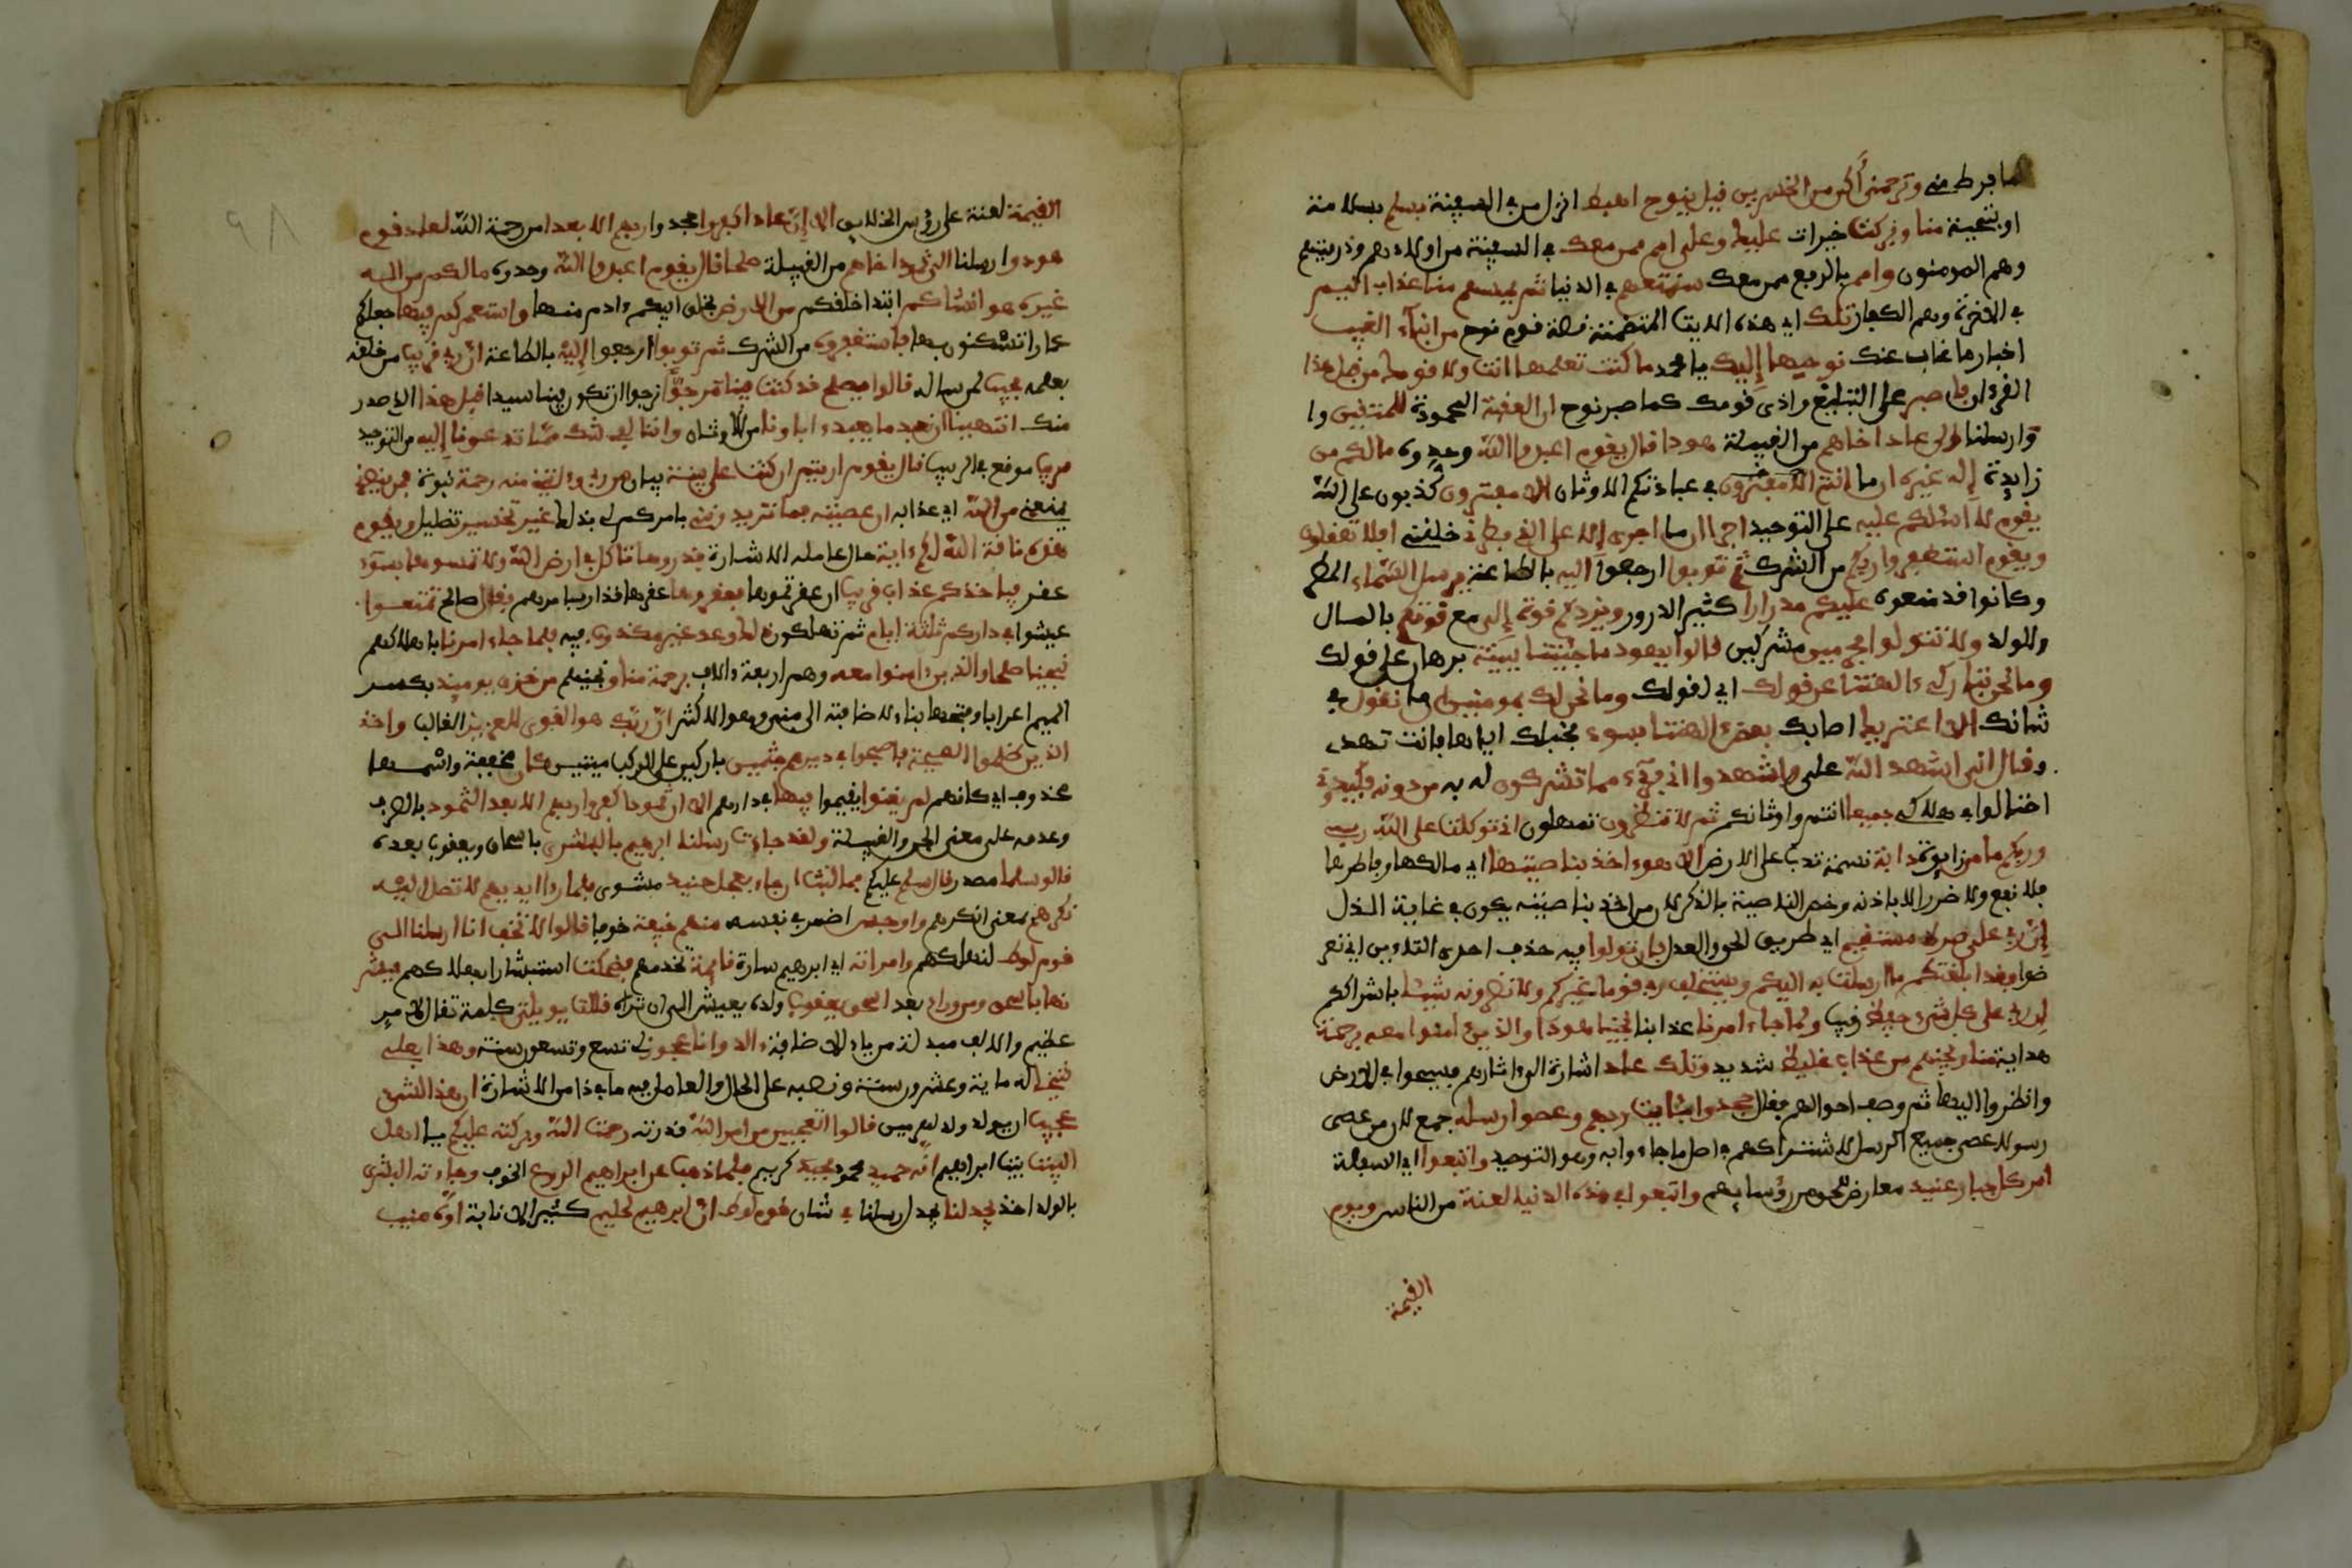 ما فرط مني وترحمني أكن من الخسرين قيل ينوح اهبط انزل من السفينة بسلم بسلامة
او بتحية منا وبركت خيرات عليك وعلى امم ممن معك في السفينة من اولادهم وذريتهم
وهم المومنون وامم بالرفع ممن معك سنمتعهم في الدنيا ثم يمسهم منا عذاب اليم
في الاخرة وهم الكفار تلك اي هذه الايت المتضمنة قصة قوم نوح من انباء الغيب
اخبار ما غاب عنك نوحيها إليك يا محمد ما كنت تعلمها انت ولا قومك من قبل هذا
القرءان فاصبر على التبليغ واذى قومك كما صبر نوح ان العقبة المحمودة للمتقين وا
وارسلنا الى عاد اخاهم من القبيلة هودا قال يقوم اعبدوا الله وحدوه مالكم من
زايدة إله غيره ان ما انتم الا مفترون في عبادتكم الاوثان الا مفترون كذبون على الله
يقوم لا اسئلكم عليه على التوحيد اجرا ان ما اجرى إلا على الذي فطرني خلقني افلا تعقلون
ويقوم استغفروا ربكم من الشرك ثم توبوا ارجعوا اليه بالطاعة يرسل السماء المطر
وكانوا قد منعوه عليكم مدرارا كثير الدرور ويزدكم قوة إلى مع قوتكم بالمال
والولد ولا تتولوا مجرمين مشركين قالوا يهود ما جئتنا ببينة برهان على قولك
وما نحن بتاركي ءالهتنا عن قولك اي لقولك وما نحن لك بمومنين ان ما نقول في
شانك الا اعتريك اصابك بعض ءالهتنا بسوء فخبلك ايها فانت تهذي
وقال انى اشهد الله على واشهدوا اني برىء مما تشركون له به من دونه فكيدوني
احتالوا في هلاكي جميعا انتم واوثانكم ثم لا تنظرون تمهلون اني توكلت على الله ربي
وربكم ما من زايدة دابة نسمة تدب على الارض الا هو ءاخذ بناصيتها اي مالكها وقاهرها
فلا نفع ولا ضرر الا باذنه وخص الناصية بالذكر لان من اخذ بناصيته يكون في غاية الذل
إن ربي على صرط مستقيم اي طريق الحق والعدل فان تولوا فيه حذف احدى التاءين اي تعر
ضوا فقد ابلغتكم ما ارسلت به اليكم ويستخلف ربي قوما غيركم ولا تضرونه شيئا باشراككم
إن ربي على كل شىء حفيظ رقيب ولما جاء امرنا عذابنا نجينا هودا والذين ءامنوا معه برحمة
هداية منا ونجينهم من عذاب غليظ شديد وتلك عاد اشارة الى ءاثارهم فسيحوا في الارض
وانظروا اليها ثم وصف احوالهم فقال جحدوا بئايت ربهم وعصوا رسله جمع لان من عصى
رسولا عصى جميع الرسل لاشتراكهم في اصل ما جاءوا به وهو التوحيد واتبعوا اي السفلة
امر كل جبار عنيد معارض للحق من رؤسايهم واتبعوا في هذه الدنيا لعنة من الناس ويوم
القيمة
٩٨
القيمة لعنة على رؤس الخلايق الا إن عادا كفروا جحدوا ربهم الا بعدا من رحمة الله لعاد قوم
هود وارسلنا الى ثمود اخاهم من القبيلة صلحا قال يقوم اعبدوا الله وحدوه مالكم من اله
غيره هو انشاكم ابتدا خلقكم من الارض بخلق ابيكم ءادم منها واستعمركم فيها جعلكم
عمارا تسكنون بها فاستغفروه من الشرك ثم توبوا ارجعوا إليه بالطاعة ان ربي قريب من خلقه
بعلمه مجيب لمن ساله قالوا يصلح قد كنت فينا مرجوا نرجوا ان تكون فينا سيدا قبل هذا الذي صدر
منك اتنهينا ان نعبد ما يعبد ءاباؤنا من الاوثان واننا لفي شك مما تدعونا إليه من التوحيد
مريب موقع في الريب قال يقوم ارءيتم ان كنت على بينة بيان من ربي وءاتيني منه رحمة نبوة فمن ينصرني
يمنعني من الله اي عذابه ان عصيته فما تزيدونني بامركم لي بذلك غير تخسير تضليل ويقوم
هذه ناقة الله لكم ءاية حال عامله الاشارة فذروها تاكل في ارض الله ولا تمسوها بسوء
عقر فياخذكم عذاب قريب ان عقرتموها فعقروها عقرها قدار بامرهم فقال صالح تمتعوا
عيشوا في داركم ثلثة ايام ثم تهلكون ذلك وعد غير مكذوب فيه فلما جاء امرنا باهلاكهم
نجينا صلحا والذين ءامنوا معه وهم اربعة ءالاف برحمة منا ونجينهم من خزي يوميذ بكسر
الميم اعرابا وفتحها بناء لاضافته الى مبنى وهو الاكثر ان ربك هو القوى العزيز الغالب واخذ
الذين ظلموا الصيحة فاصبحوا في ديرهم جثمين باركين على الركب ميتين كان مخففة واسمها
محذوف اي كانهم لم يغنوا يقيموا فيها في دارهم الا ان ثمودا كفروا ربهم الا بعدا لثمود بالصرف
وعدمه على معنى الحي والقبيلة ولقد جاءت رسلنا ابرهيم بالبشرى باسحاق ويعقوب بعده
قالو سلما مصدر قال سلم عليكم فما لبث ان جاء بعجل حنيذ مشوى فلما رءا ايديهم لا تصل اليه
نكرهم بمعنى انكرهم واوجس اضمر في نفسه منهم خيفة خوفا قالوا لا تخف انا ارسلنا الى
قوم لوط لنهلكهم وامراته اي ابرهيم سارة قايمة تخدمهم فضحكت استبشارا بهلاكهم فبشر
نها باسحق ومن وراء بعد اسحق يعقوب ولده يعيش الى ان تراه قالت يويلتى كلمة تقال عند امر
عظيم والالف مبدلة من ياء الاضافة ءالد وانا عجوز لي تسع وتسعون سنة وهذا بعلى
شيخا له ماية وعشرون سنة ونصبه على الحال والعامل فيه ما في ذا من الاشارة ان هذا لشىء
عجيب ان يولد ولد لهرمين قالوا اتعجبين من امر الله قدرته رحمت الله وبركته عليكم يا اهل
البيت بيت ابراهيم انه حميد محمود مجيد كريم فلما ذهب عن ابراهيم الروع الخوف وجاءته البشرى
بالولد اخذ يجدلنا يجدل رسلنا في شان قوم لوط ان ابرهيم لحليم كثير الاناية اوه منيب